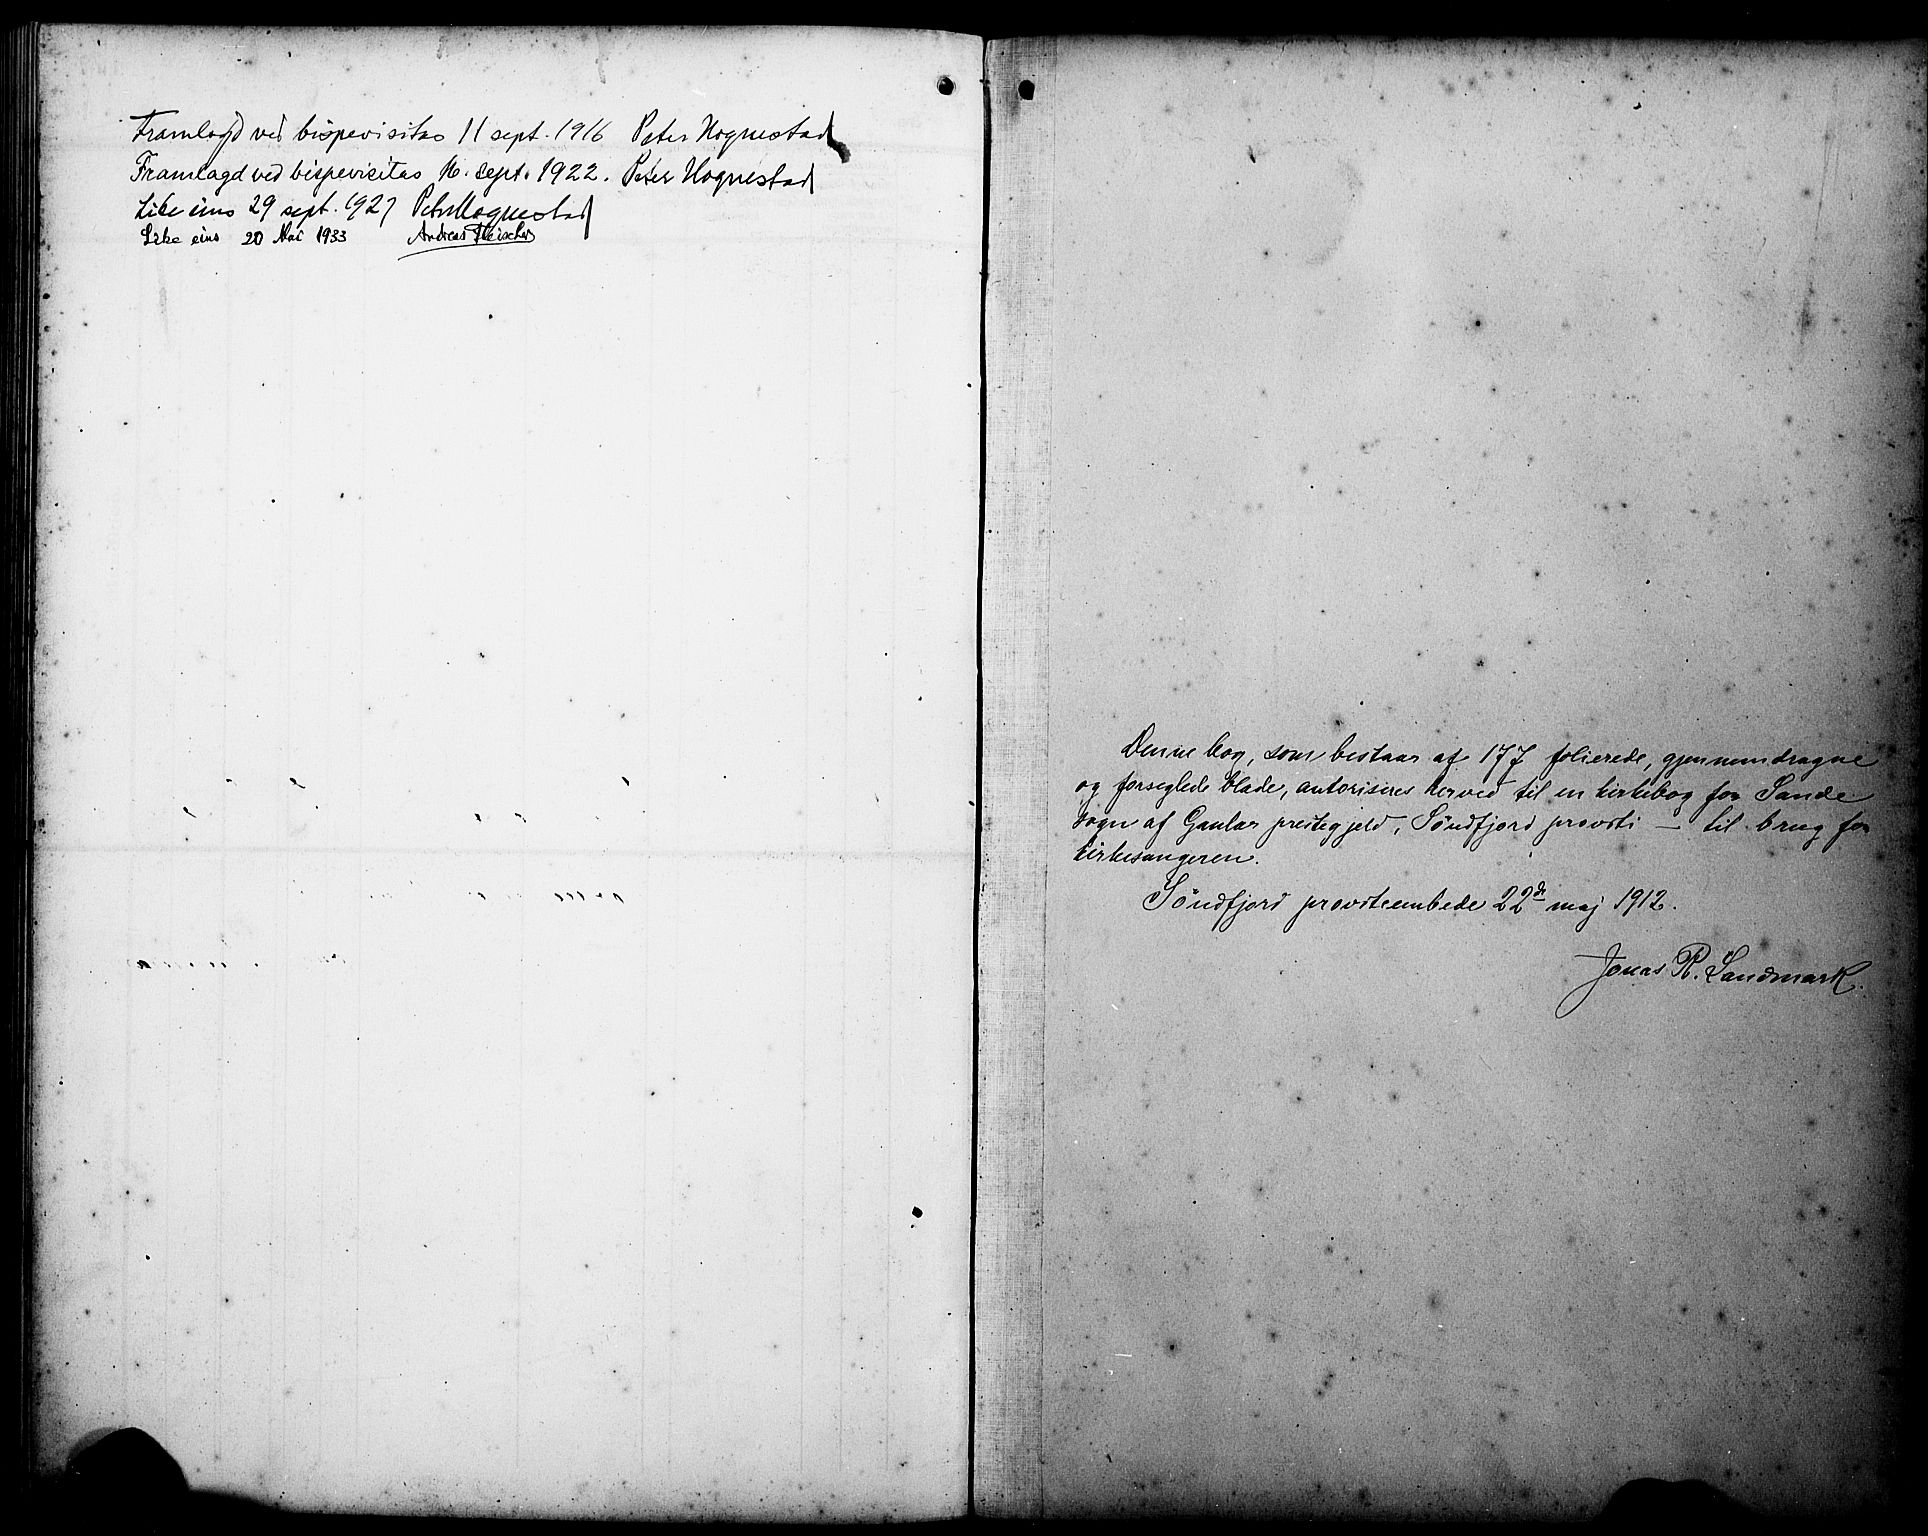 Framlagd ved bispevisitas 11 sept. 1916 Peter Hognestad
Framlagd ved bispevisitas 16. sept. 1922. Peter Hognestad
Like eins 29 sept. 1927 Peter Hognestad
Like eins 20 Mai 1933 Andreas Fleischer
Denne bog, som bestaar af 177 folierede, gjennemdragne
og forseglede blade, autoriseres herved til en kirkebog for Sande
sogn af Gaular prestegjeld, Söndfjord provsti — til brug for
kirkesangeren.
Söndfjord provsteembede 22de maj 1912.
Jonas R. Landmark.